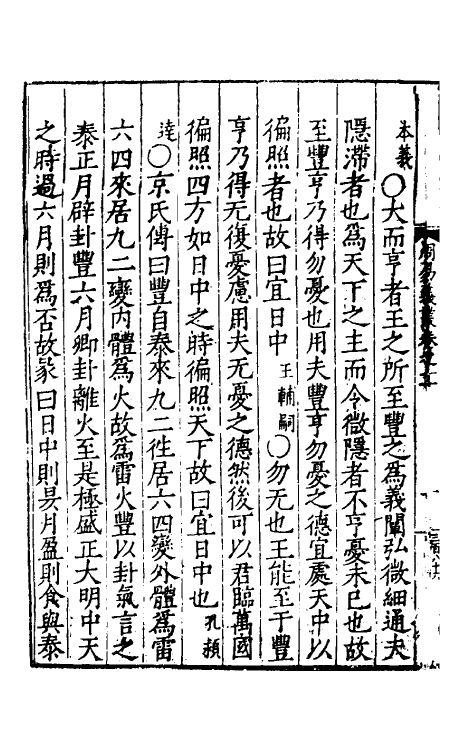 本義〇大而亨者王之所至豐之為義闡弘微細通夫
隱滯者也為天下之主而令微隱者不亨憂未已也故
至豐亨乃得勿憂也用夫豐亨勿憂之德宜處天中以
徧照者也故曰宜日中王輔嗣〇勿无也王能至于豐
亨乃得无復憂慮用夫无憂之德然後可以君臨萬國
徧照四方如日中之時徧照天下故曰宜日中也孔穎
達〇京氏傳曰豐自泰來九二徃居六四變外體為雷
六四來居九二變内體為火故為雷火豐以卦氣言之
泰正月辟卦豐六月卿卦離火至是極盛正大明中天
之時過六月則為否故彖曰日中則昃月盈則食與泰
周易義叢卷之十